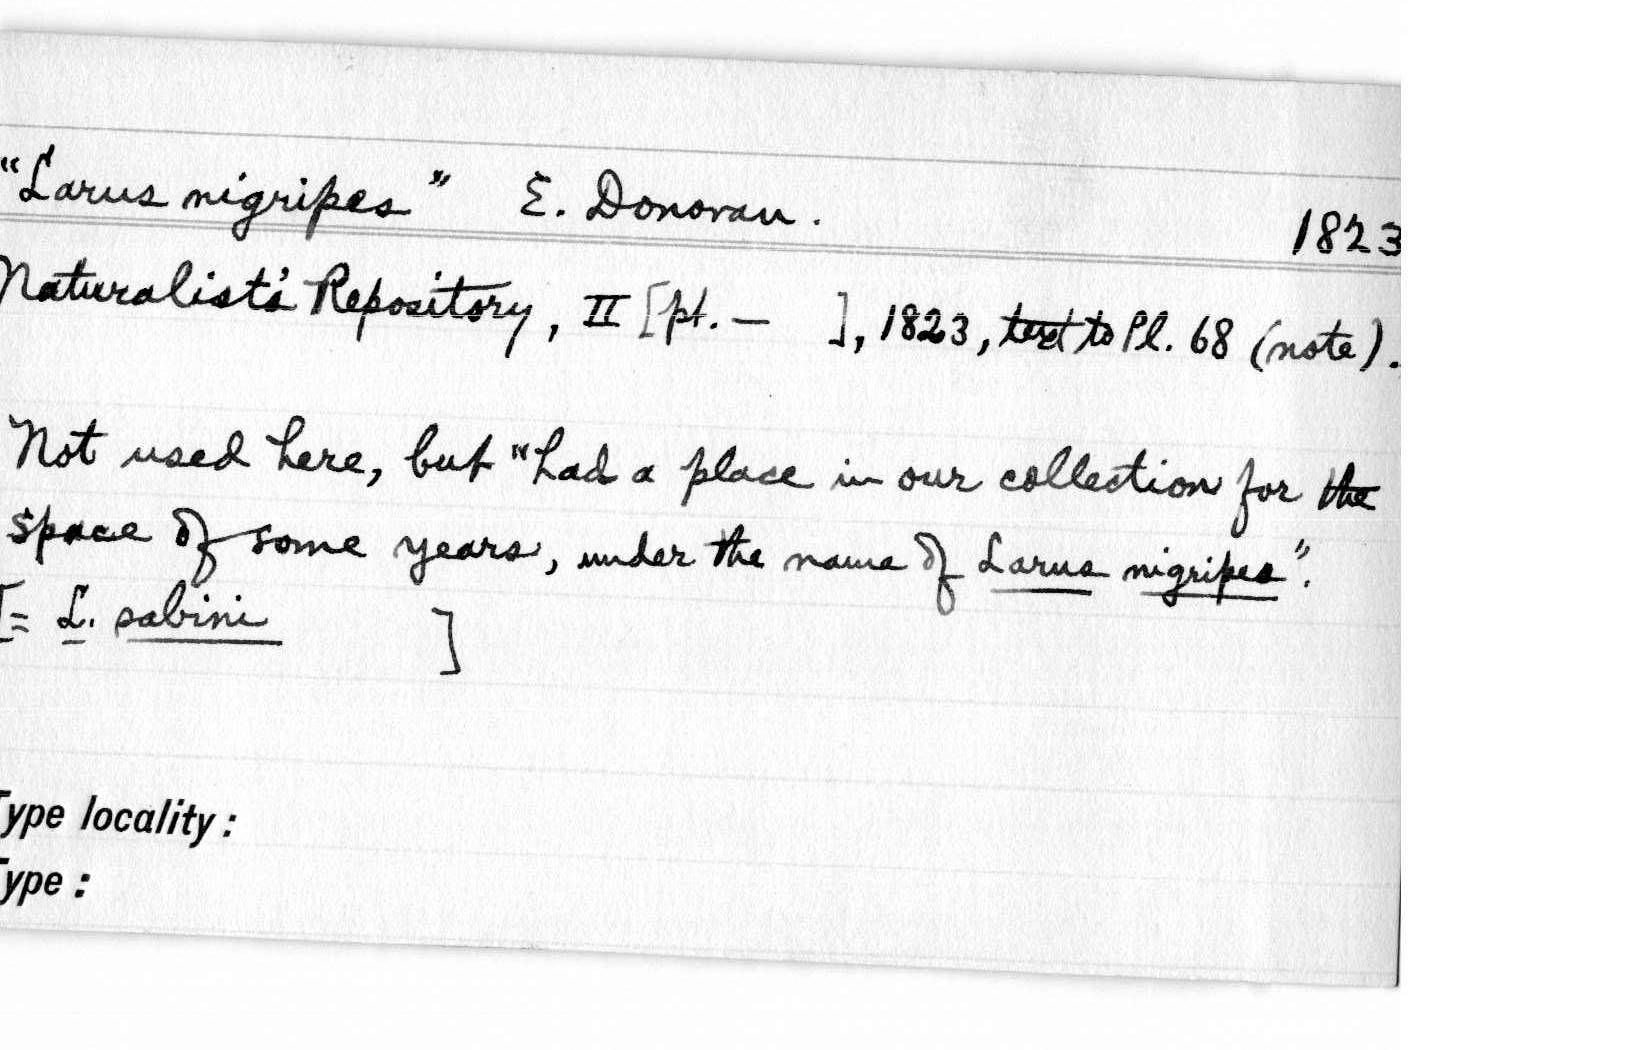 "Larus nigripes" E. Donovan. 1823
Naturalist's Repository, II [pt. — ], 1823, text to Pl. 68 (note).
Not used here, but "had a place in our collection for the
space of some years, under the name of Larus nigripes".
[= L. sabini ]
Type locality:
Type: